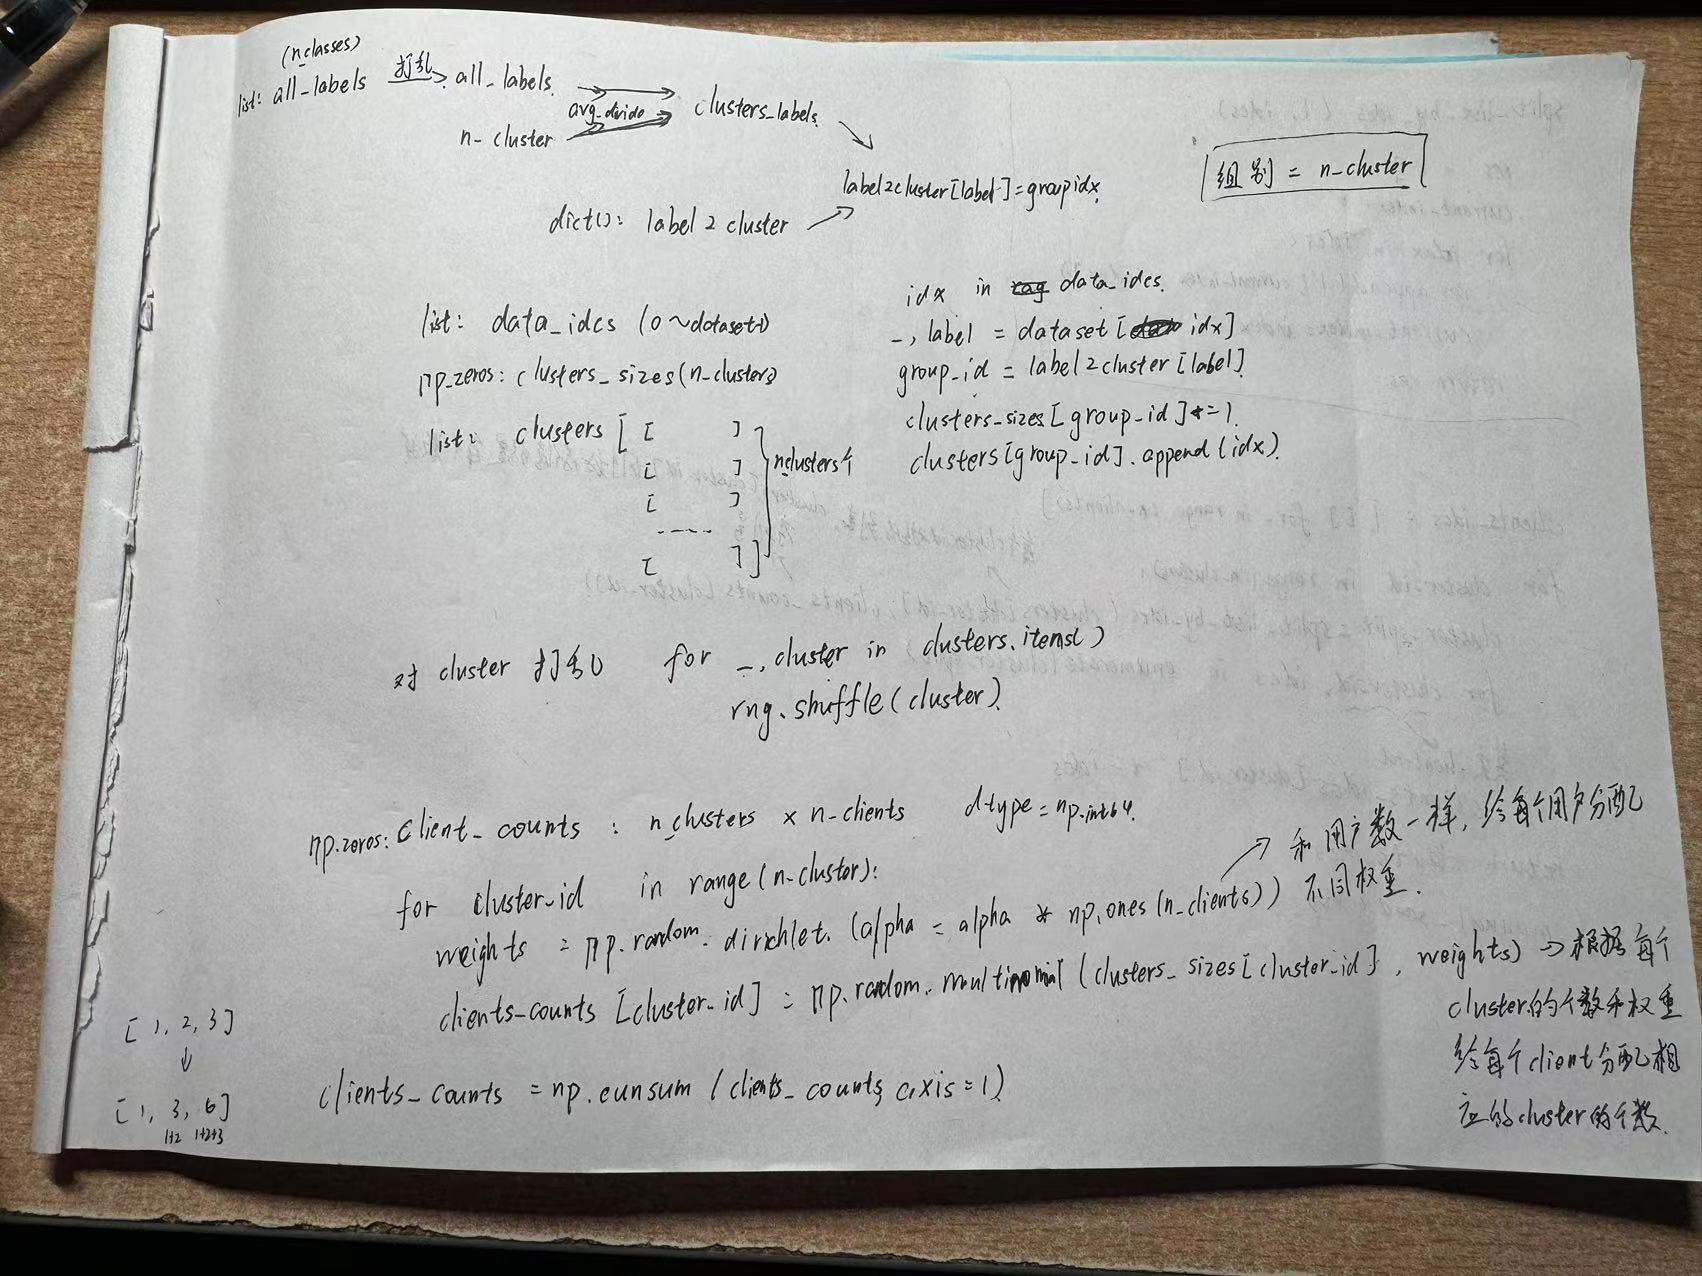 (n_classes)
list: all_labels 打乱 all_labels
avg_divide
n_cluster
clusters_labels
label2cluster[label]=groupidx
dict(): label2cluster
组别 = n_cluster
list: data_idcs (0~dataset-1)
np.zeros: clusters_sizes(n_clusters)
list: clusters [ [ ]
[ ]
[ ]
----
[ ] ]
n_clusters个
idx in data_idcs
_, label = dataset[ idx]
group_id = label2cluster[label]
clusters_sizes[group_id]+=1
clusters[group_id].append(idx)
对 cluster 打乱 for _, cluster in clusters.items()
rng.shuffle(cluster)
np.zeros: client_counts : n_clusters × n_clients dtype=np.int64
for cluster_id in range(n_cluster):
weights = np.random.dirichlet. (alpha = alpha * np.ones(n_clients))
→ 和用户数一样, 给每个用户分配
不同权重.
clients_counts [cluster_id] = np.random.multinomial (clusters_sizes[cluster_id], weights) → 根据每个
cluster的个数和权重
给每个client分配相
应的cluster的个数.
clients_counts = np.cumsum (clients_counts, axis=1)
[1, 2, 3]
↓
[1, 3, 6]
1+2 1+2+3